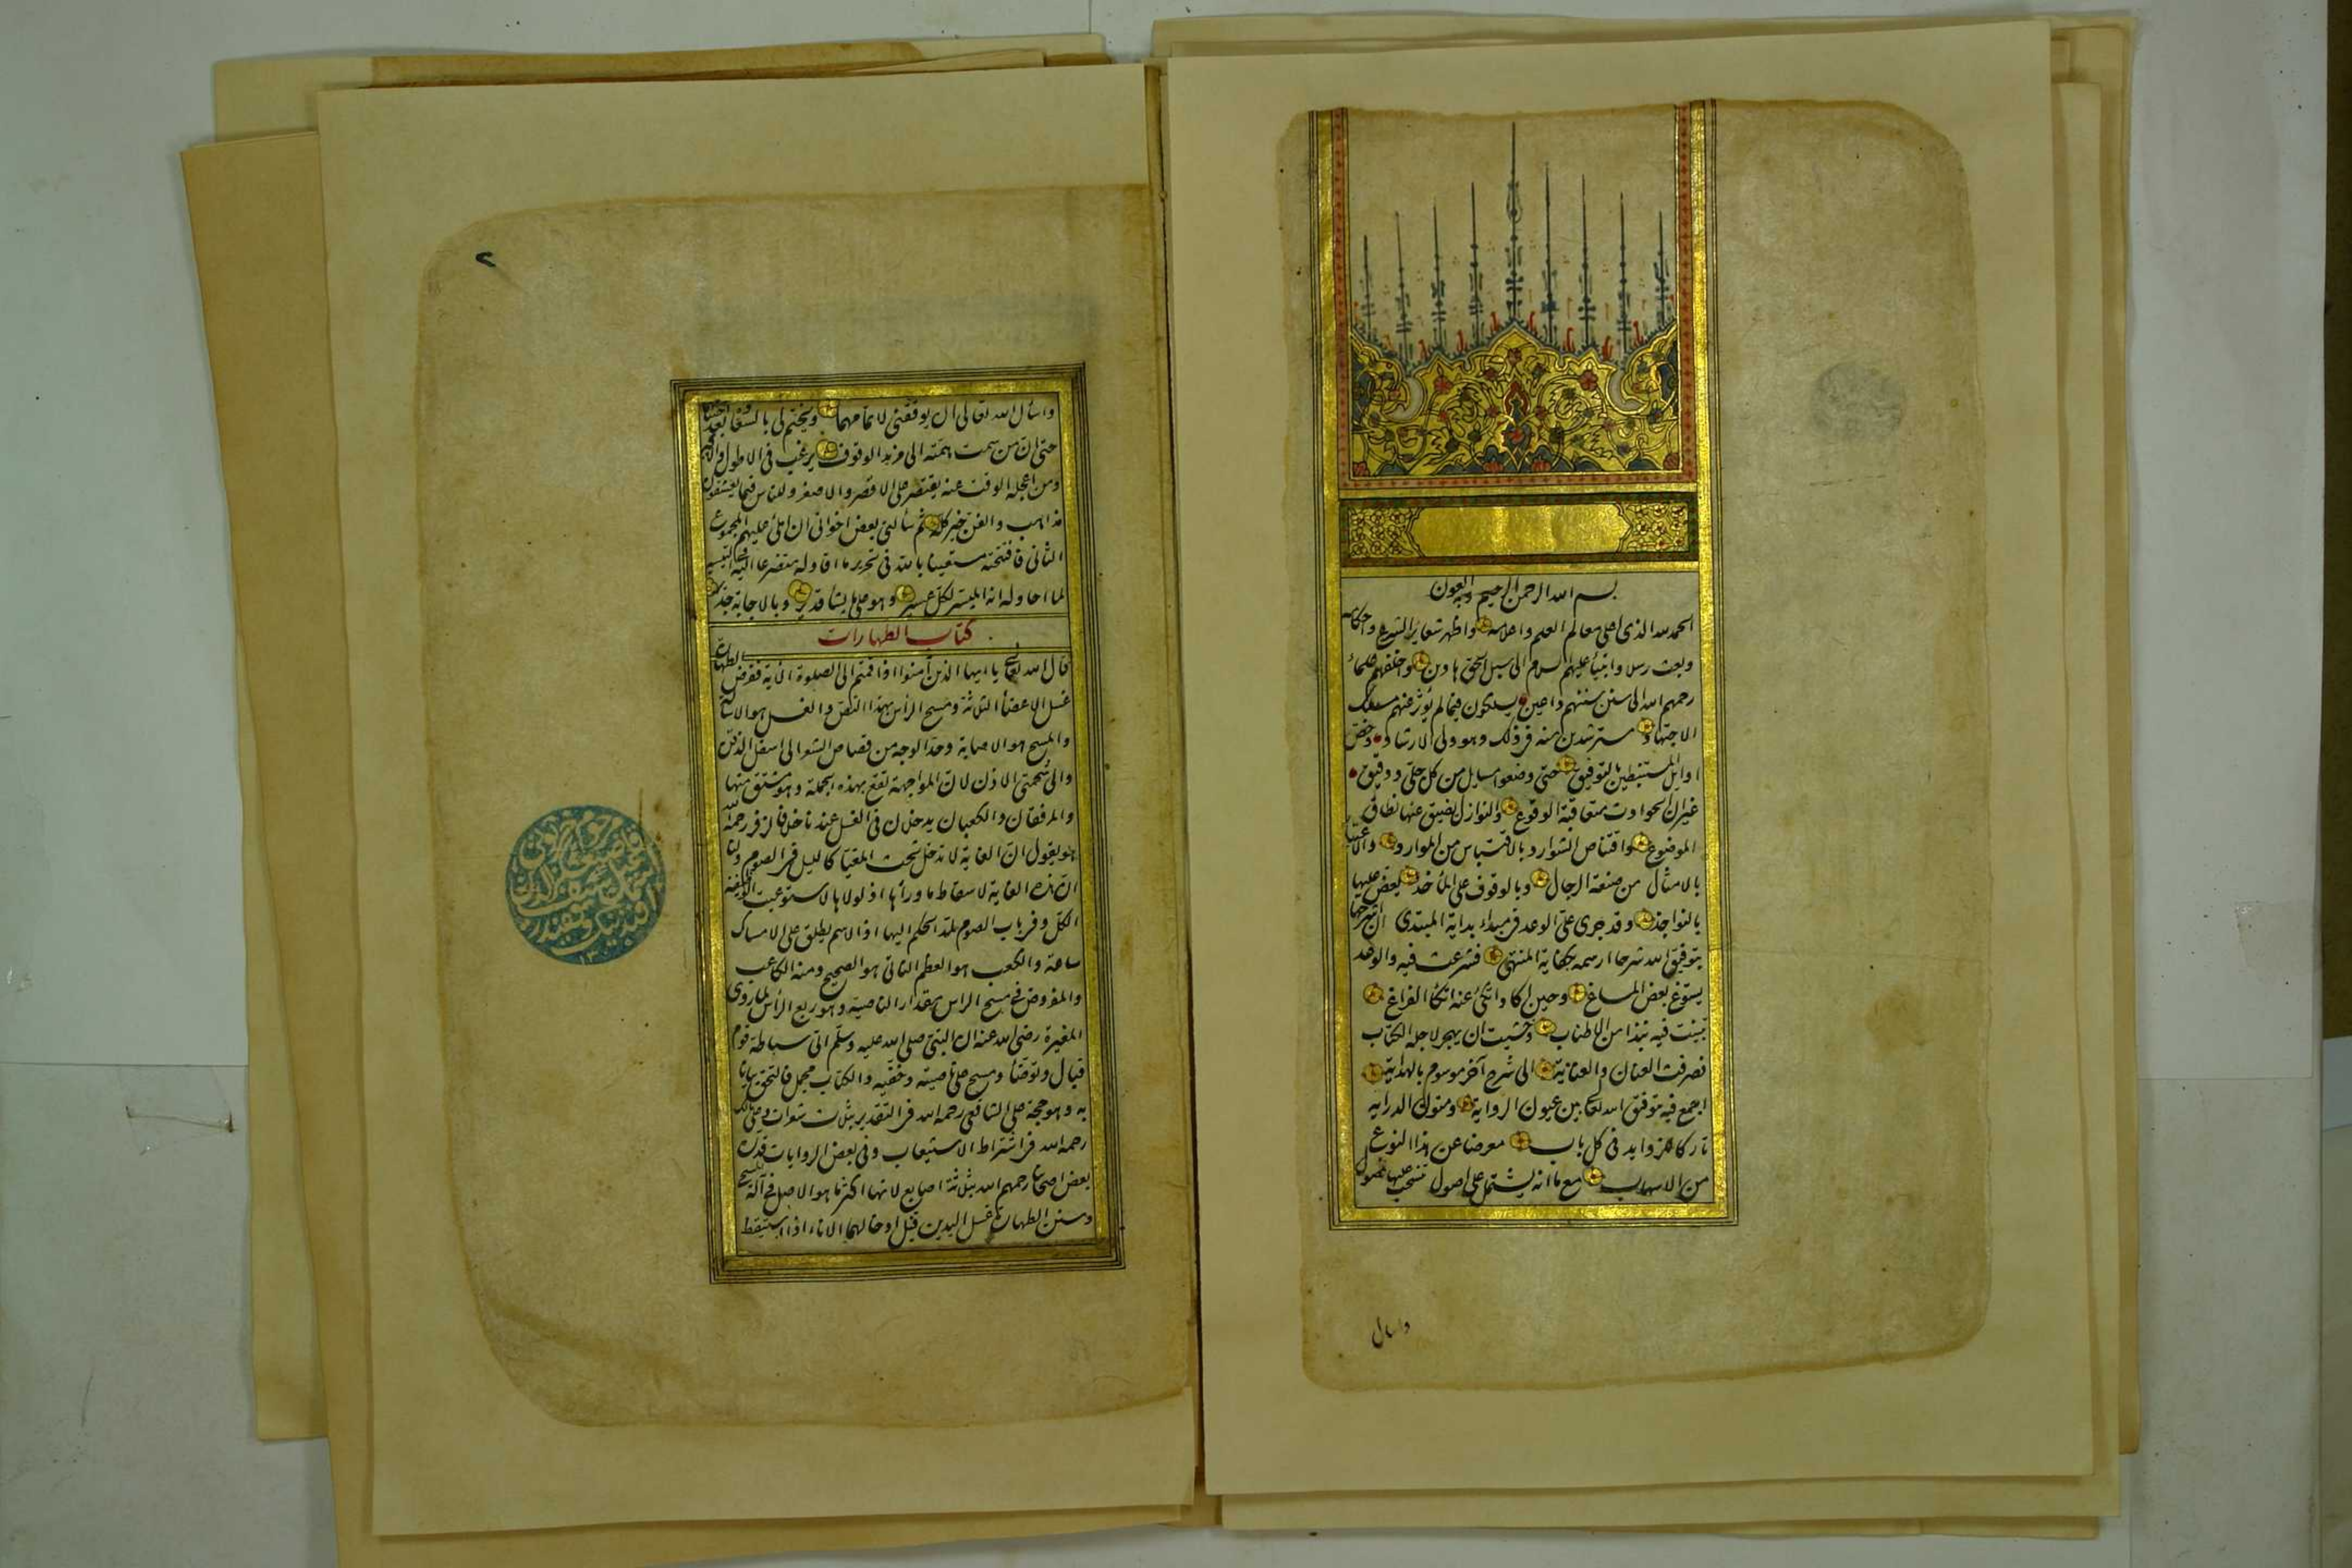 بسم الله الرحمن الرحيم وبه العون
الحمد لله الذى اعلى معالم العلم واعلامه واظهر شعائر الشرع واحكامه
وبعث رسلا وانبيأ عليهم السلام الى سبيل الحق هادين واخلفهم علمأ
رحمهم الله الى سنن سننهم داعين يسلكون فيما لم يؤثر عنهم مسلك
الاجتهاد مسترشدين منه فى ذلك وهو ولى الارشاد وخص
اوايل المستنبطين بالتوفيق حتى وضعوا مسايل من كل جلى ودقيق
غير ان الحوادث متعاقبة الوقوع والنوازل يضيق عنها نطاق
الموضوع واقتناص الشوارد بالاقتباس من الموارد والاعتبار
بالامثال من صنعة الرجال وبالوقوف على المأخذ يعض عليها
بالنواجذ وقد جرى على الوعد فى مبداء بداية المبتدى ان اشرحها
بتوفيق الله شرحا ارسمه بكفاية المنتهى فشرعت فيه والوعد
يسوغ بعض المساغ وحين اكاد اتكئ عنه اتكأ الفراغ
تبينت فيه نبذا من الاطناب وخشيت ان يهجر لاجله الكتاب
فصرفت العنان والعناية الى شرح آخر موسوم بالهداية
اجمع فيه بتوفيق الله تعالى بين عيون الرواية ومتون الدراية
تاركا للزوايد فى كل باب معرضا عن هذا النوع
من الاسهاب مع ما انه يشتمل على اصول تنسحب عليها فصول
واسأل
٢
واسأل الله تعالى ان يوفقنى لاتمامهما ويختم لى بالسعادة بعد اختتامهما
حتى ان من سمت همته الى مزيد الوقوف يرغب فى الاطول والاكبر
ومن اعجله الوقت عنه يقتصر على الاقصر والاصغر وللناس فيما يعشقون
مذاهب والفن خير كله ثم سألنى بعض اخوانى ان املى عليهم المجموع
الثانى فافتتحته مستعينا بالله فى تحرير ما اقاوله متضرعا اليه فى التيسير
لما احاوله انه الميسر لكل عسير وهو على ما يشا قدير وبالاجابة جدير
كتاب الطهارات
قال الله تعالى يا ايها الذين آمنوا اذا قمتم الى الصلوة الآية ففرض الطهارة
غسل الاعضأ الثلاثة ومسح الرأس بهذا النص والغسل هو الاسالة
والمسح هو الاصابة وحد الوجه من قصاص الشعر الى اسفل الذقن
والى شحمتى الاذن لان المواجهة تقع بهذه الجملة وهو مشتق منها
والمرفقان والكعبان يدخلان فى الغسل عندنا خلافا لزفر رحمه الله
هو يقول ان الغاية لا تدخل تحت المغيا كالليل فى الصوم ولنا
ان هذه الغاية لاسقاط ما ورأها اذ لولاها لاستوعبت الوظيفة
الكل وفى باب الصوم لمد الحكم اليها اذ الاسم يطلق على الامساك
ساعة والكعب هو العظم الناتى هو الصحيح ومنه الكاعب
والمفروض فى مسح الراس مقدار الناصية وهو ربع الرأس لما روى
المغيرة رضى الله عنه ان النبى صلى الله عليه وسلم اتى سباطة قوم
فبال وتوضأ ومسح على ناصيته وخفيه والكتاب مجمل فالتحق بيانا
به وهو حجة على الشافعى رحمه الله فى التقدير بثلاث شعرات وعلى مالك
رحمه الله فى اشتراط الاستيعاب وفى بعض الروايات قدره
بعض اصحابنا رحمهم الله بثلاثة اصابع لانها اكثر ما هو الاصل فى آلة المسح
وسنن الطهارة غسل اليدين قبل ادخالهما الاناء اذا استيقظ